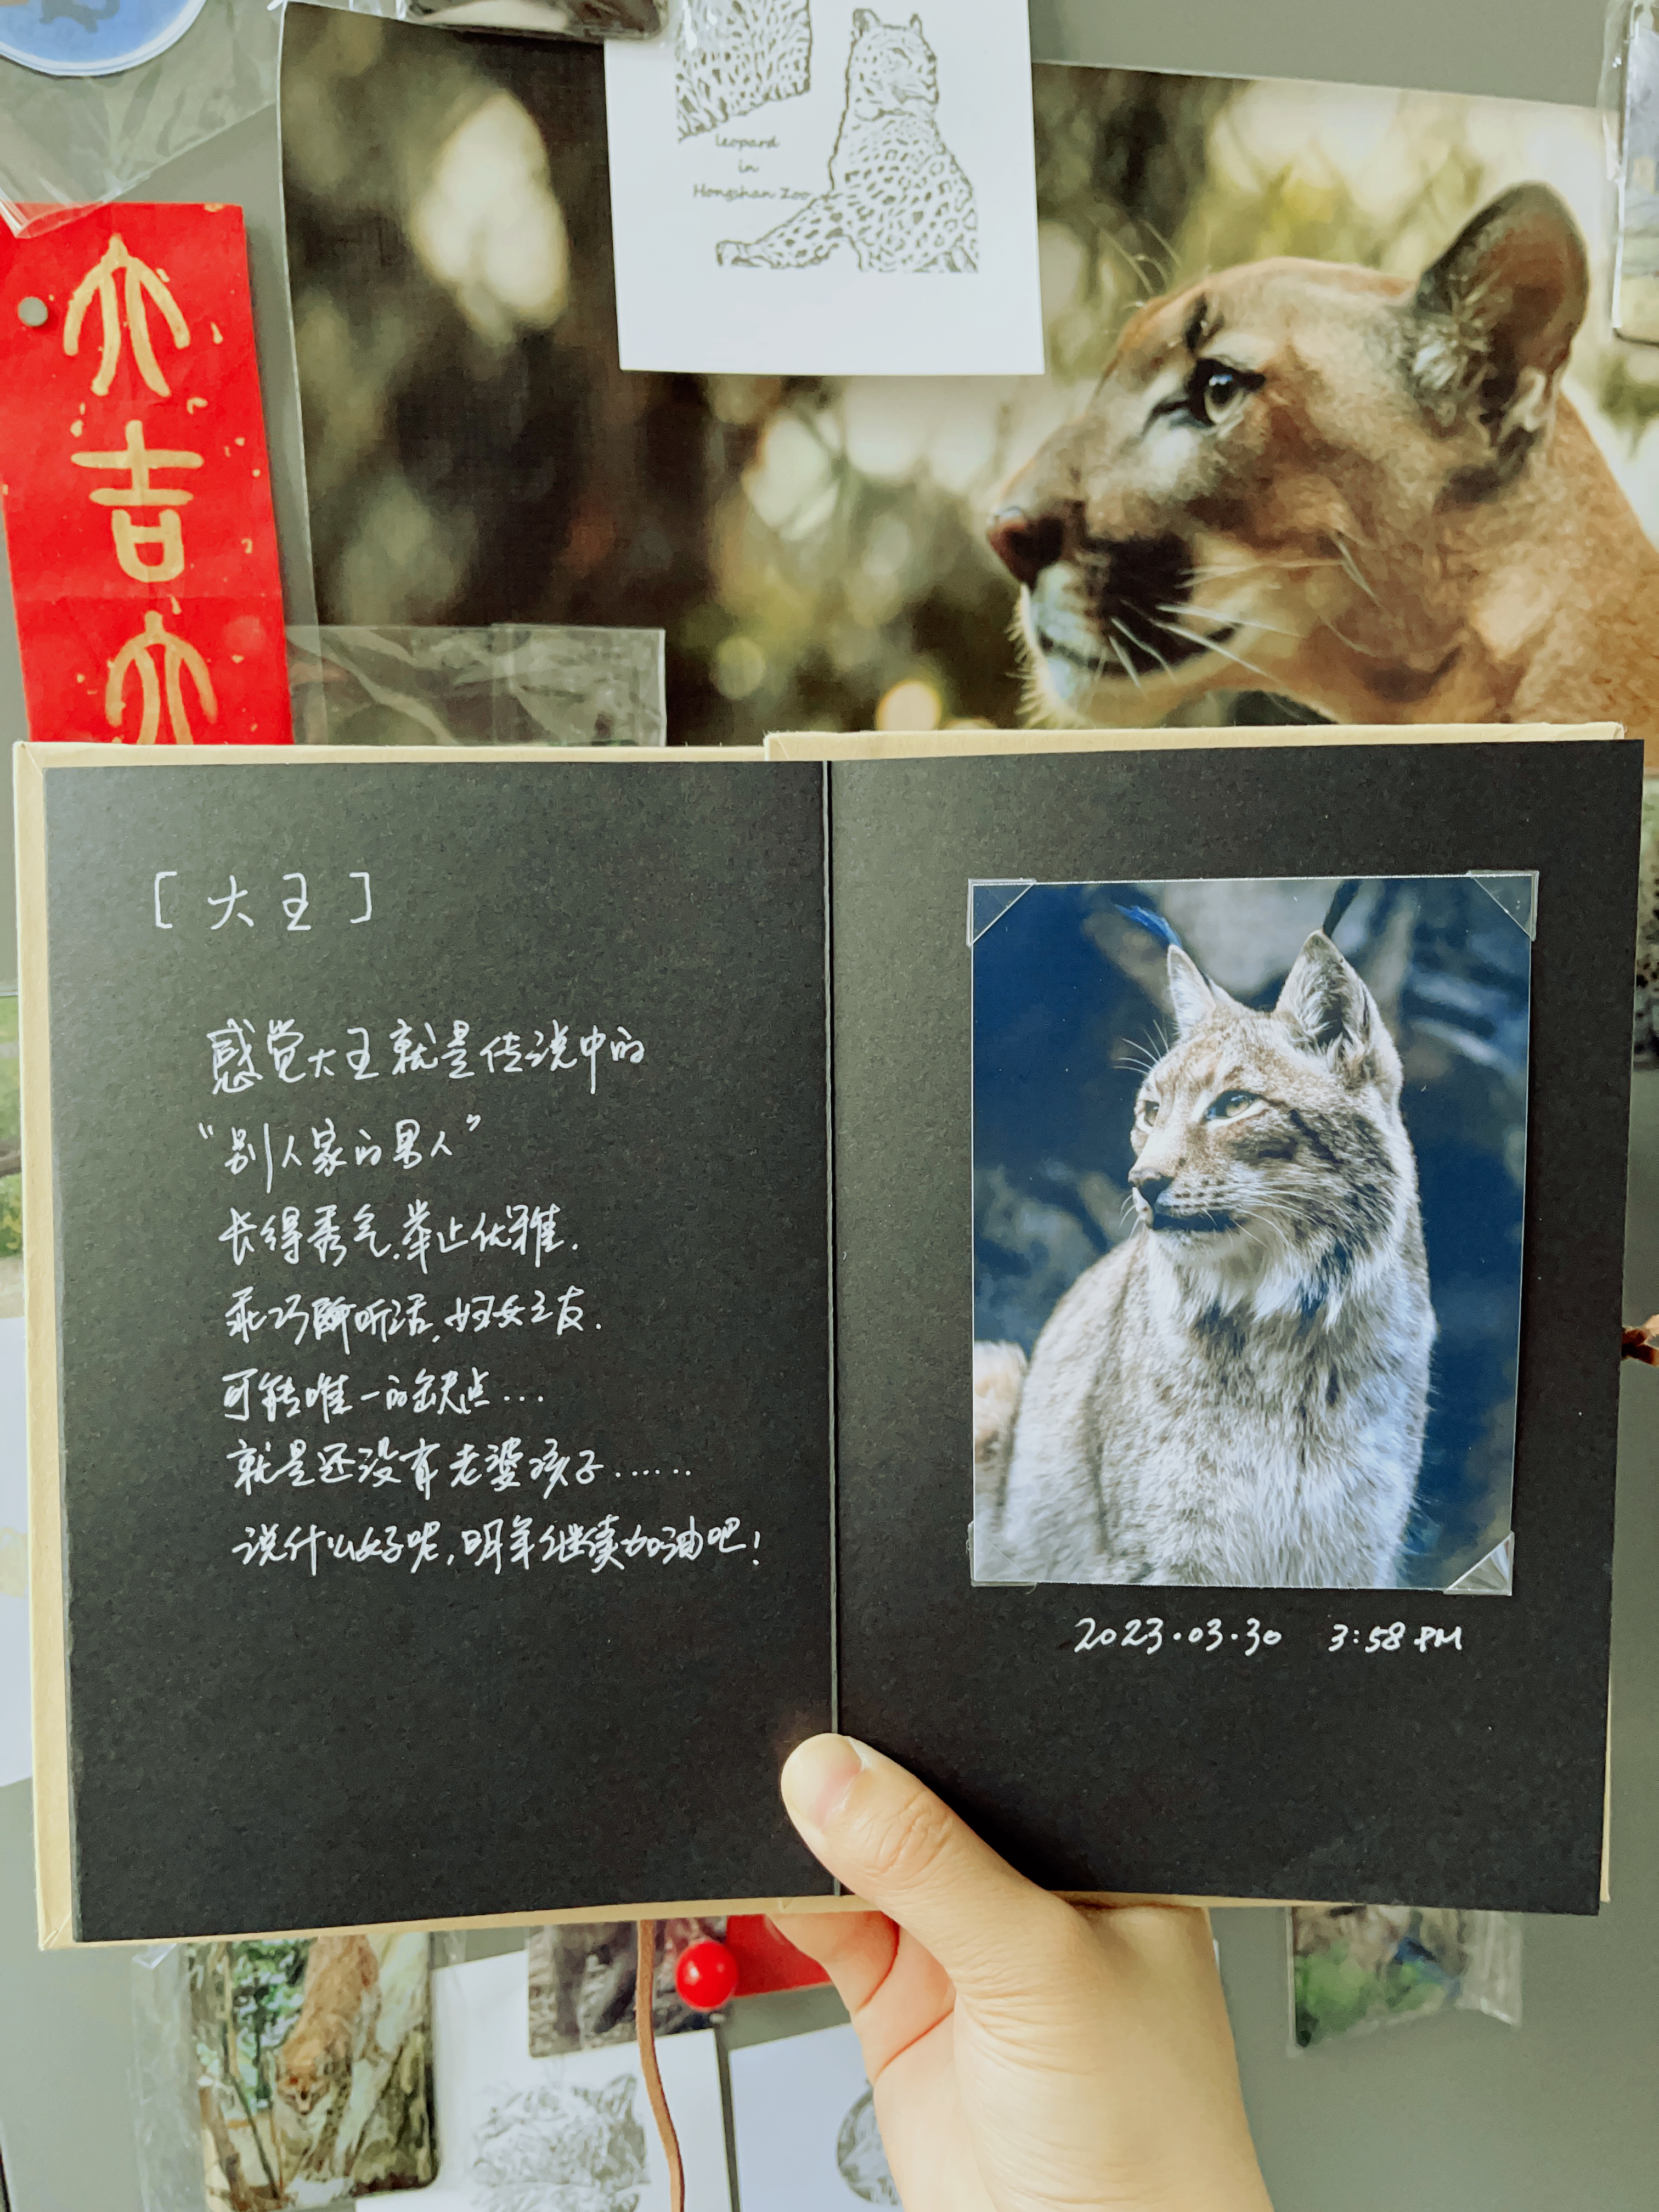 leopard
in
Hongshan Zoo
大
吉
大
[ 大王 ]
感觉大王就是传说中的
“别人家的男人”
长得秀气,举止优雅.
乖巧听话,妇女之友.
可能唯一的缺点...
就是还没有老婆孩子......
说什么好呢,明年继续加油吧!
2023.03.30 3:58 PM